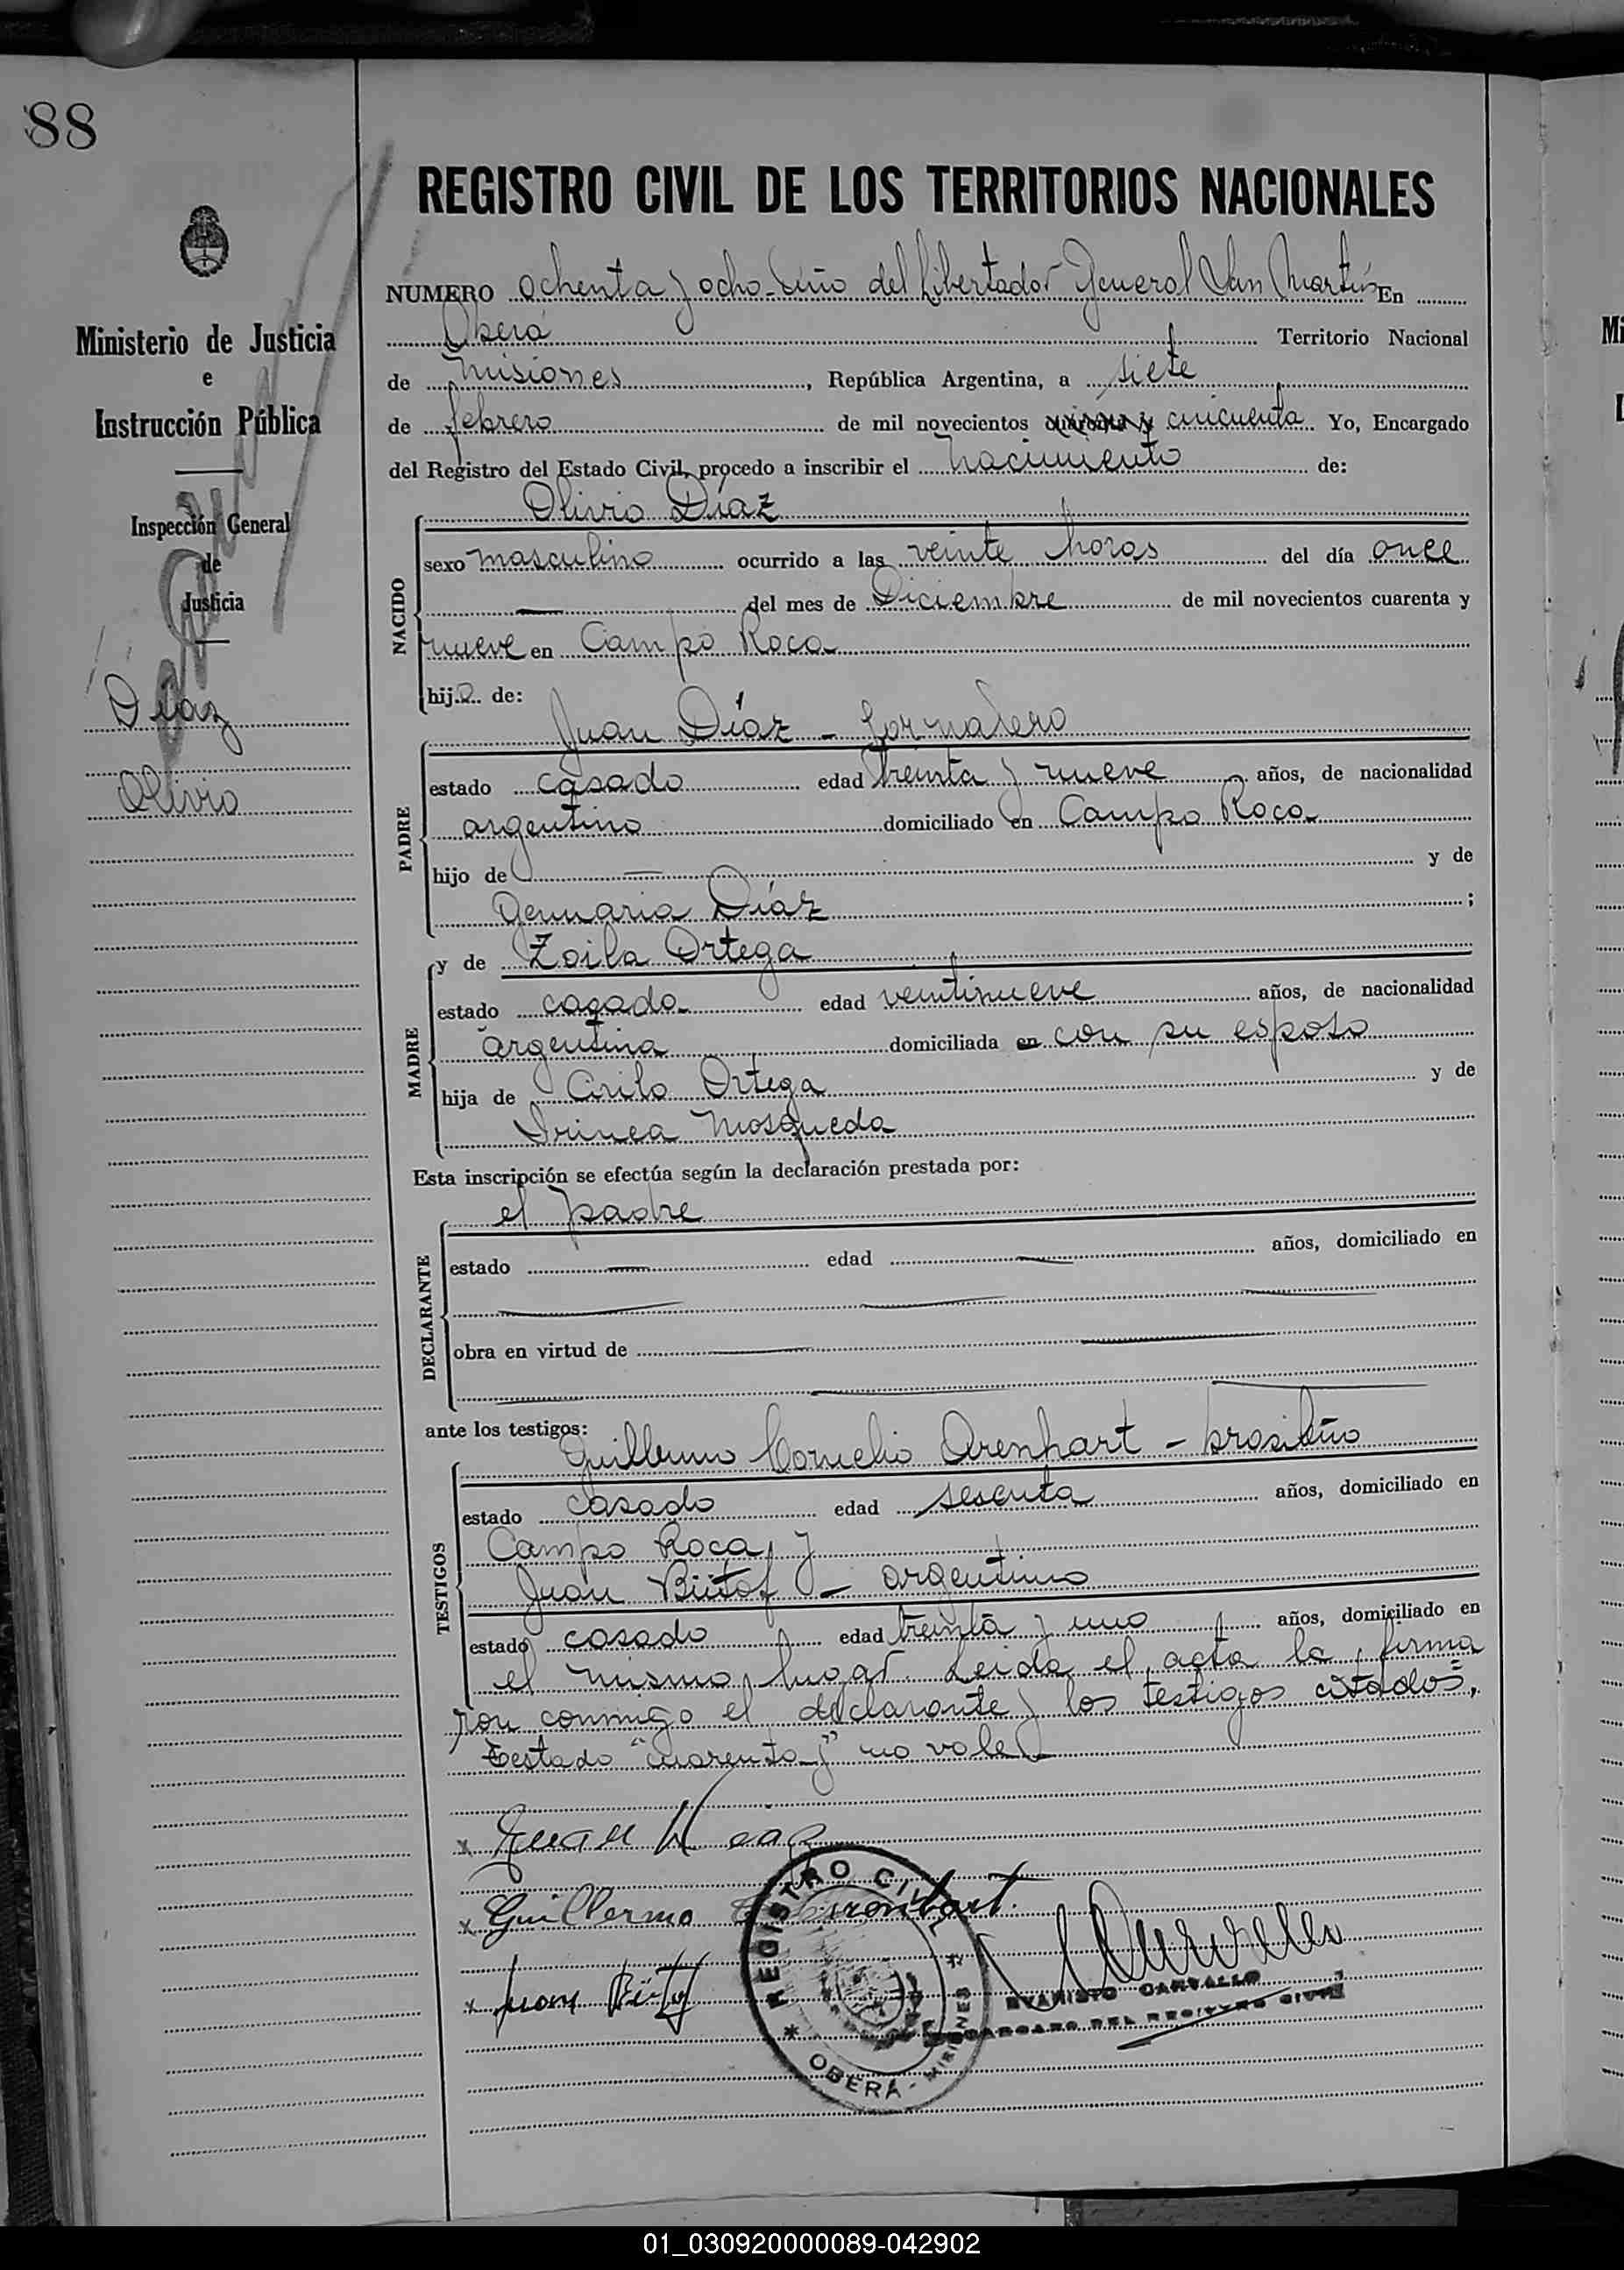 88
REGISTRO CIVIL DE LOS TERRITORIOS NACIONALES
NUMERO ochenta y ocho - Año del Libertador General San Martín En
Oberá Territorio Nacional
de Misiones, República Argentina, a siete
de febrero de mil novecientos cuarenta y cincuenta Yo, Encargado
del Registro del Estado Civil, procedo a inscribir el Nacimiento de:
Ministerio de Justicia
e
Instrucción Pública
Inspección General
de
Justicia
Díaz
Olivio
NACIDO
Olivio Díaz
sexo masculino ocurrido a las veinte horas del día once
— del mes de Diciembre de mil novecientos cuarenta y
nueve en Campo Roca
hijo de:
PADRE
Juan Díaz - Jornalero
estado casado edad treinta y nueve años, de nacionalidad
argentino domiciliado en Campo Roca
hijo de — y de
Genuaria Díaz ;
y de Zoila Ortega
MADRE
estado casada edad veintinueve años, de nacionalidad
argentina domiciliada en con su esposo
hija de Cirilo Ortega y de
Irinea Mosqueda
Esta inscripción se efectúa según la declaración prestada por:
DECLARANTE
el padre
estado — edad — años, domiciliado en
— — —
obra en virtud de — —
— — —
ante los testigos:
TESTIGOS
Guillermo Cornelio Arenhart - brasileño
estado casado edad sesenta años, domiciliado en
Campo Roca, y
Juan Bütof - argentino
estado casado edad treinta y uno años, domiciliado en
el mismo lugar. Leida el acta la firma
ron conmigo el declarante y los testigos citados=,
Testado "cuarenta y" no vale
x Juan Diaz
x Guillermo Arenhart.
x Juan Bütof
* REGISTRO CIVIL *
OBERÁ - MISIONES
EVARISTO CARVALLO
ENCARGADO DEL REGISTRO CIVIL
01_030920000089-042902